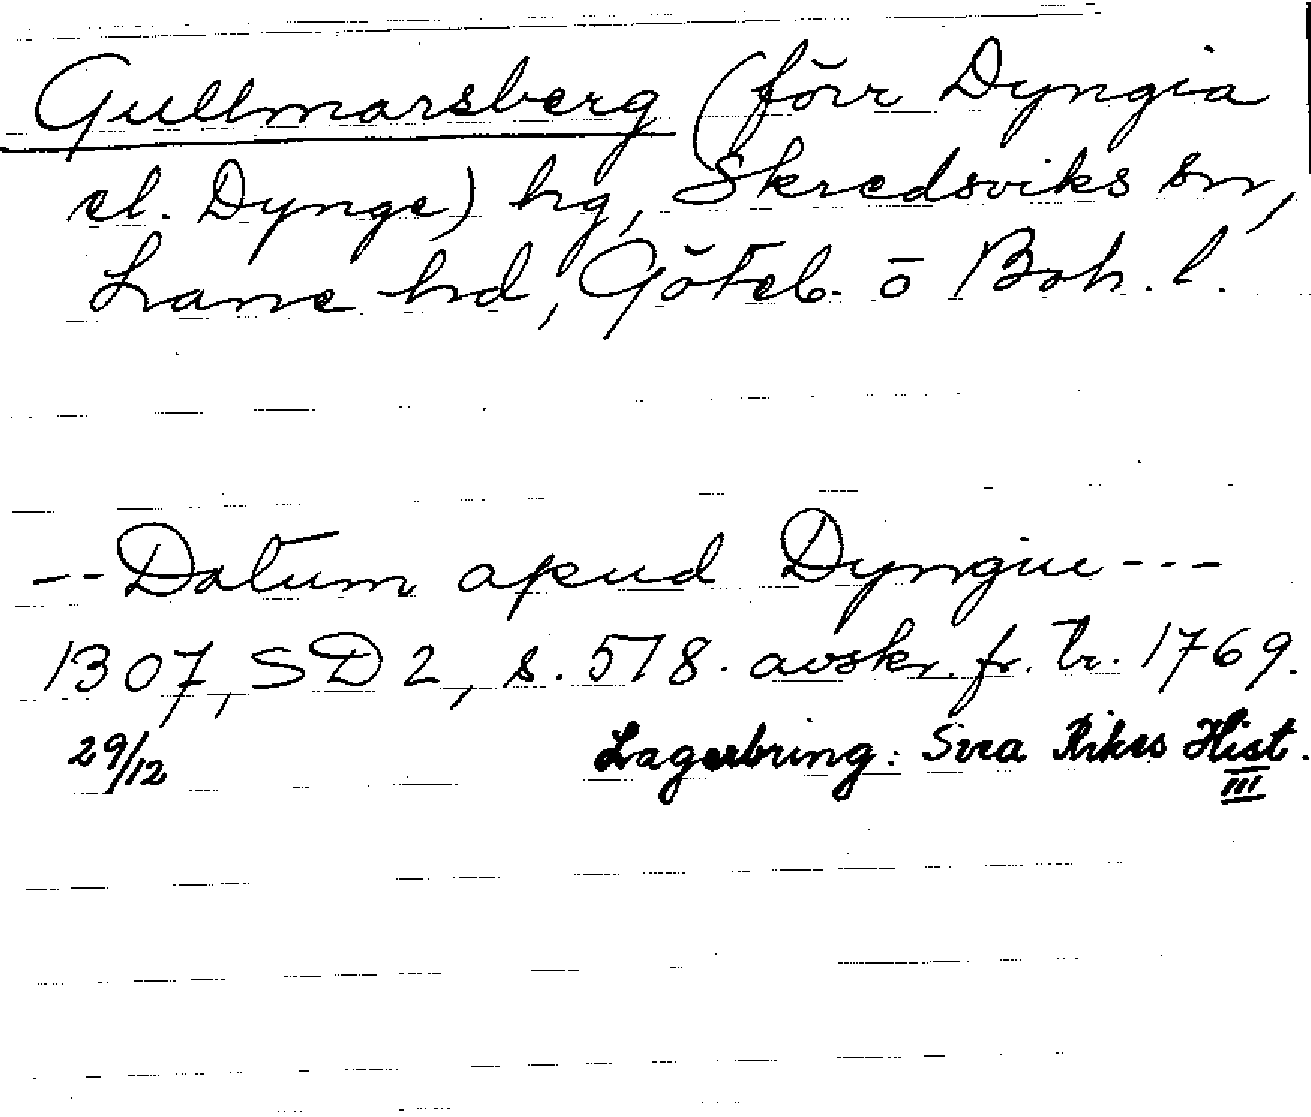 Gullmarsberg (förr Dyngia
el. Dynge) hg, Skredsviks sn,
Lane hd, Göteb. o Boh. l.
-- Datum apud Dyngiu ---
1307, SD 2, s. 578. avskr. fr. tr. 1769.
29/12 Lagerbring: Svea Rikes Hist.
III